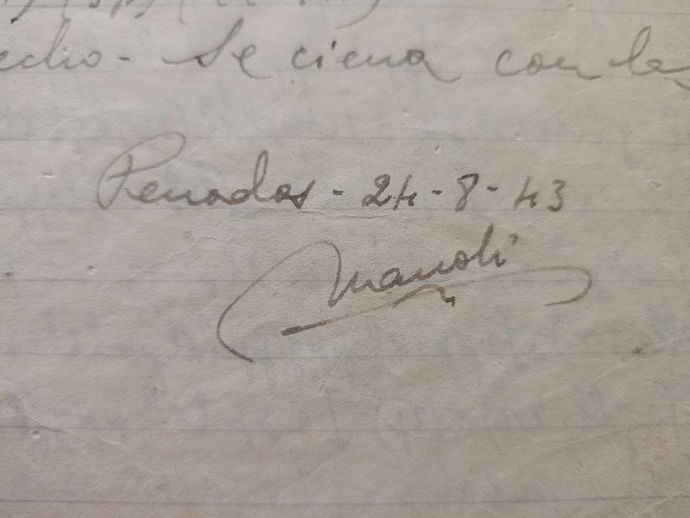 echo - Se ciena con la
Penados - 24-8-43
Manoli